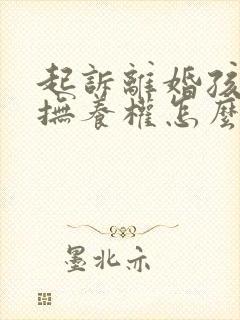 起訴離婚孩
撫養權怎麼
墨北亦